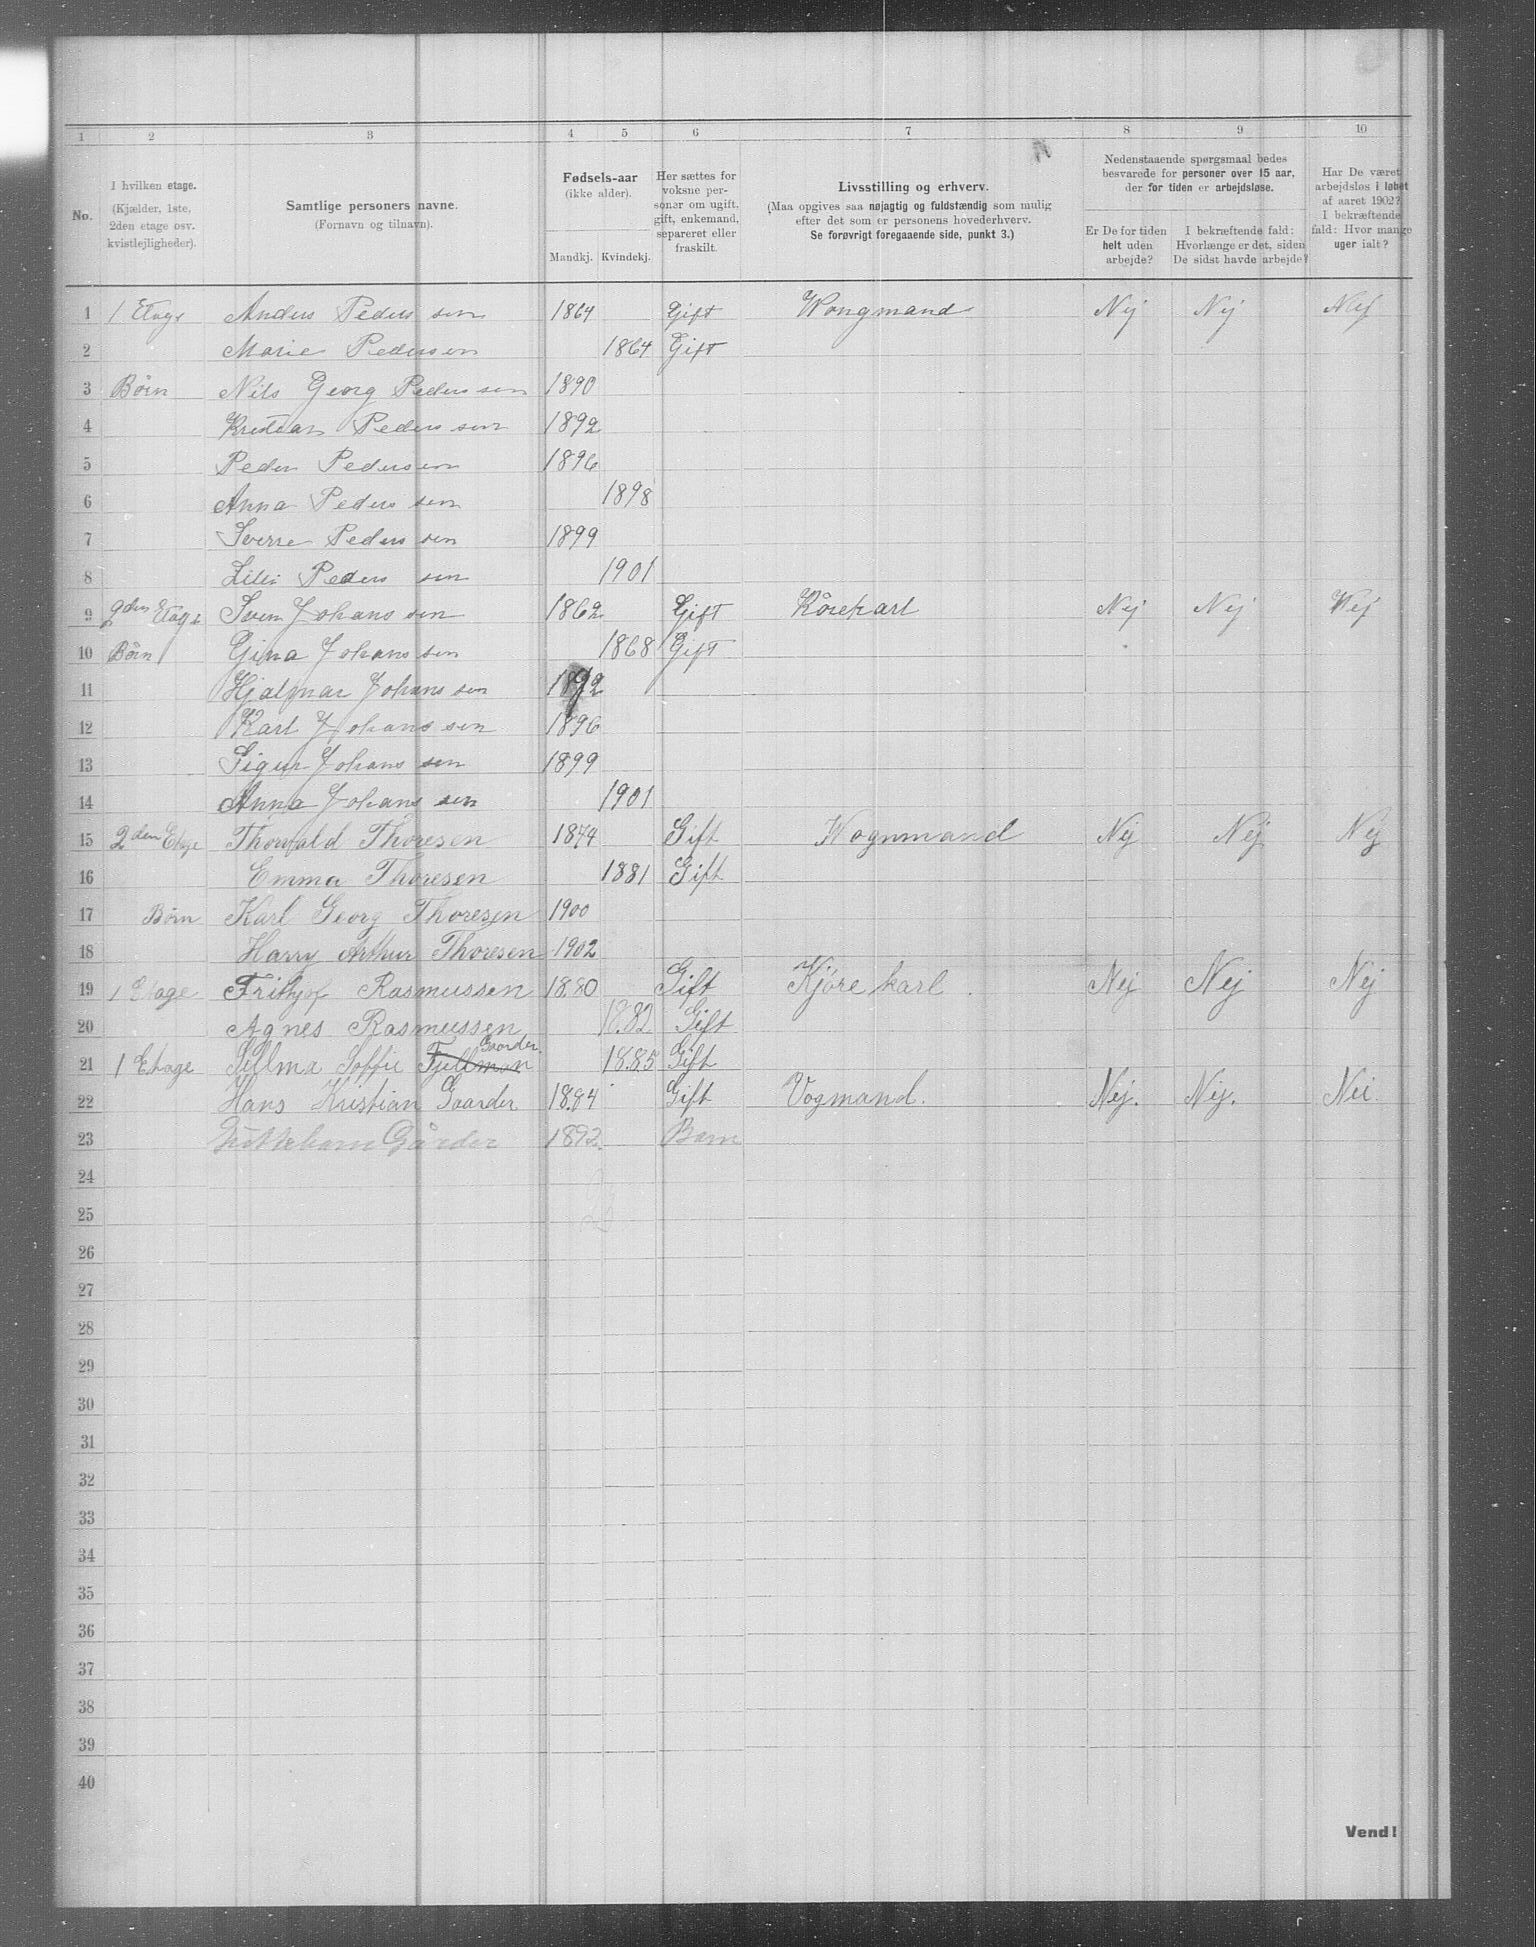 1 2 3 4 5 6 7 8 9 10
No.
I hvilken etage.
(Kjælder, 1ste,
2den etage osv.
kvistlejligheder).
Samtlige personers navne.
(Fornavn og tilnavn).
Fødsels-aar
(ikke alder).
Mandkj. Kvindekj.
Her sættes for
voksne per-
soner om ugift,
gift, enkemand,
separeret eller
fraskilt.
Livsstilling og erhverv.
(Maa opgives saa nøjagtig og fuldstændig som mulig
efter det som er personens hovederhverv.
Se forøvrigt foregaaende side, punkt 3.)
Nedenstaaende spørgsmaal bedes
besvarede for personer over 15 aar,
der for tiden er arbejdsløse.
Er De for tiden
helt uden
arbejde?
I bekræftende fald:
Hvorlænge er det, siden
De sidst havde arbejde?
Har De været
arbejdsløs i løbet
af aaret 1902?
I bekræftende
fald: Hvor mange
uger ialt?
1 1 Etage Anders Pedersen 1864 Gift Wongmand Nej Nej Nej
2 Marie Pedersen 1864 Gift
3 Børn Nils Georg Pedersen 1890
4 Kristian Pedersen 1892
5 Peder Pedersen 1896
6 Anna Pedersen 1898
7 Sverre Pedersen 1899
8 Lilli Pedersen 1901
9 2den Etage Sven Johansen 1862 Gift Kørekarl Nej Nej Nej
10 Børn Gina Johansen 1868 Gift
11 Hjalmar Johansen 1892
12 Karl Johansen 1896
13 Sigur Johansen 1899
14 Anna Johansen 1901
15 2den Etage Thorvald Thoresen 1874 Gift Wognmand Nej Nej Nej
16 Emma Thoresen 1881 Gift
17 Børn Karl Georg Thoresen 1900
18 Harry Arthur Thoresen 1902
19 1 Etage Frithjof Rasmussen 1880 Gift Kjøre karl. Nej Nej Nej
20 Agnes Rasmussen 1882 Gift
21 1 Etage Sellma Soffie Fjellman Gaarder. 1885 Gift
22 Hans Kristian Gaarder 1884 Gift Vogmand. Nej. Nej. Nei.
23 Gårder 1892. Barn
24
25
26
27
28
29
30
31
32
33
34
35
36
37
38
39
40
Vend!